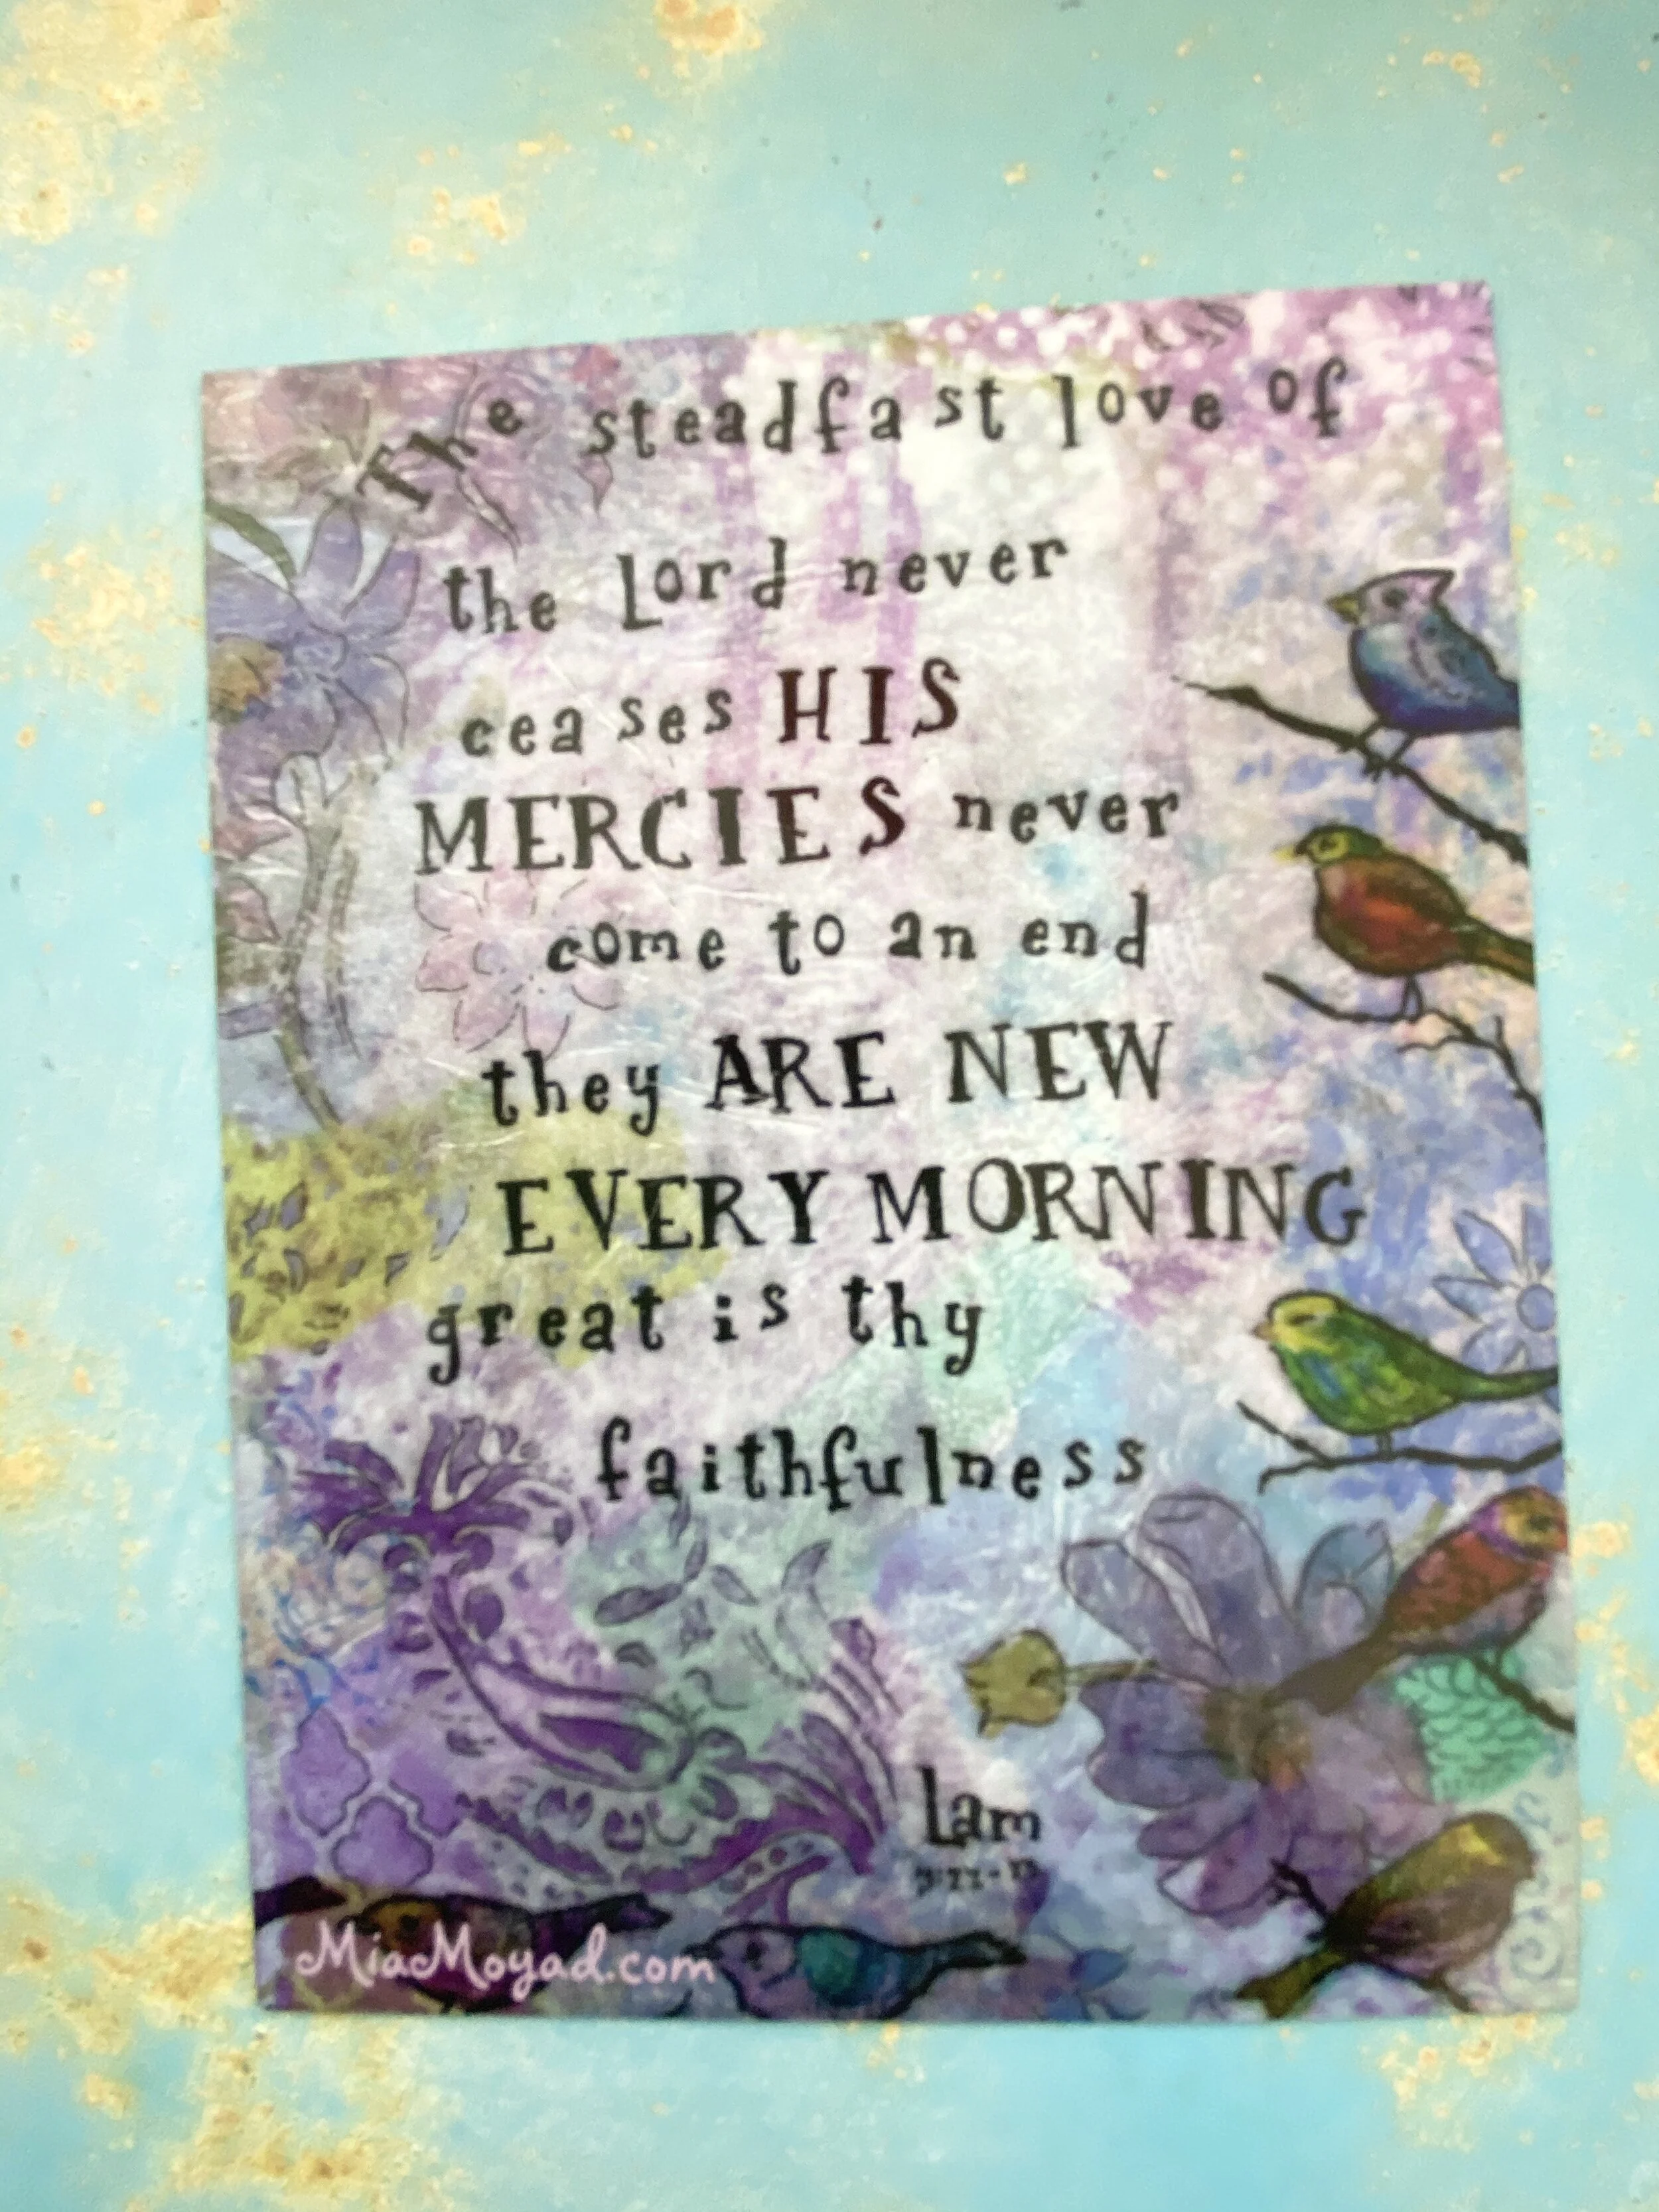 The steadfast love of
the Lord never
ceases HIS
MERCIES never
come to an end
they ARE NEW
EVERY MORNING
great is thy
faithfulness
Lam
MiaMoyad.com